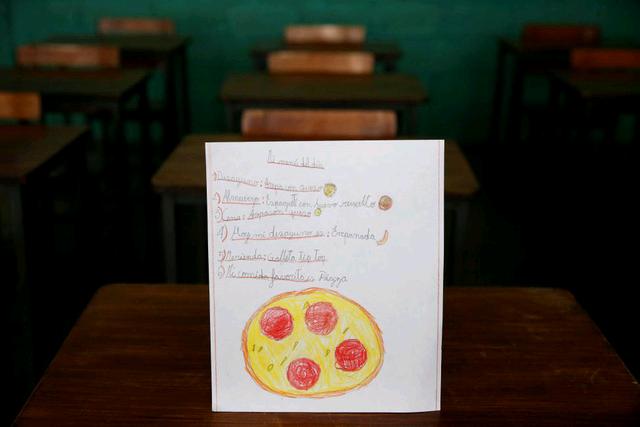 Mi menú del día
1) Desayuno: Arepa con queso
2) Almuerzo: Espaguetti con huevo revuelto
3) Cena: Arepa con queso
4) Hoy mi desayuno es: Empanada
5) Merienda: Galleta tip top
6) Mi comida favorita es Pizza